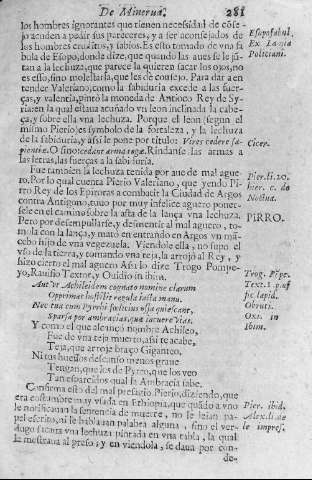 De Minerua. 281
los hombres ignorantes que tienen necesidad de cõse-
jo acuden a pedir sus pareceres, y a ser aconsejados de
los hombres eruditos, y sabios. Es esto tomado de vna fa
bula de Esopo, donde dize, que quando las aues se le jũ-
tan a la lechuza, que parece la quieren sacar los ojos, no
es esso, sino molestarla, que les de consejo. Para dar a en
tender Valeriano, como la sabiduria excede a las fuer-
ças, y valentia, pintò la moneda de Antioco Rey de Sy-
ria: en la qual estaua echado vn leon inclinada la cabe-
ça, y sobre ella vna lechuza. Porque el leon segun el
mismo Pierio, es symbolo de la fortaleza, y la lechuza
de la sabiduria, y assi le pone por titulo: Vires cedere sa-
pientiæ. O sino: cedant arma togæ. Rindanse las armas a
las letras, las fuerças a la sabiduria.
Esopo fabul.
Ex Lamia
Politiani.
Cicer.
Fue tambien la lechuza tenida por aue de mal ague-
ro. Por lo qual cuenta Pierio Valeriano, que yendo Pi-
rro Rey de los Epirotas a combatir la Ciudad de Argos
contra Antigono, tuuo por muy infelice aguero poner-
sele en el camino sobre la asta de la lança vna lechuza.
Pero por despumpalarse, y desmentir el mal aguero, to-
mola con la lança, y matò en entrando en Argos vn mã-
cebo hijo de vna vegezuela. Viendole ella, no supo el
vso de la tierra, y tomando vna teja, la arrojò al Rey, y
hizo cierto el mal aguero. Assi lo dize Trogo Pompe-
yo, Rauisio Textor, y Ouidio in ibim.
Pier. li. 20.
hier. c. de
Noctua.
PIRRO.
Trog. Põpe.
Text. 1. p. off
fic. lapid.
Obruti.
Oui. in
Ibim.
Aut vt Achileidem cognato nomine clarum
Opprimat hostilis tegula iacta manu.
Nec tua quam Pyrrhi fœlicius ossa quiescant,
Sparsa per ambracias, quæ iacuere vias.
Y como el que alcançò nombre Achileo,
Fue de vna teja muerto, assi te acabe,
Teja, que arroje braço Giganteo,
Ni tus huessos descanso menos graue
Tengan, que los de Pyrro, que los veo
Tan esparcidos qual la Ambracia sabe.
Confirma esto del mal presagio Pierio, diziendo, que
era costumbre muy vsada en Ethiopia, que quãdo a vno
le notificauan la sentencia de muerte, no le leian pa-
pel escrito, ni le hablauan palabra alguna, sino el ver-
dugo sacaua vna lechuza pintada en vna tabla, la qual
la mostraua al preso, y en viendola, se daua por con-
Pier. ibid.
Alex. li. de
le impres.
de-